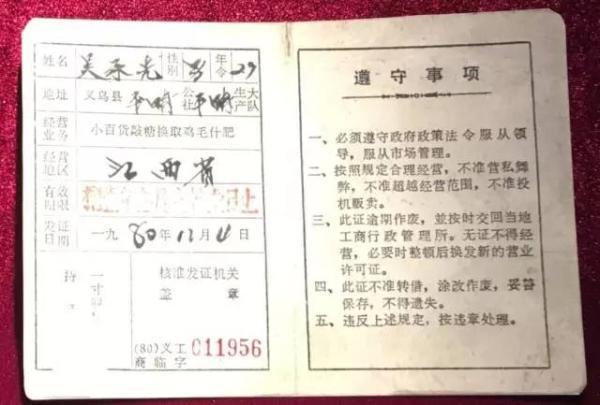 姓名 吴 性别 男 年令 29
地址 义乌县 平畴 公社 平畴 生产大队
经营业务 小百货敲糖换取鸡毛什肥
经营地区 江西省
有效期限
发证日期 一九80年12月4日
持
一寸
核准发证机关
签 章
(80)义工商临字 C11956
遵守事项
一、必须遵守政府政策法令服从领
导，服从市场管理。
二、按照规定合理经营，不准营私舞
弊，不准超越经营范围，不准投
机贩卖。
三、此证逾期作废，並按时交回当地
工商行政管理所。无证不得经
营，必要时整顿后换发新的营业
许可证。
四、此证不准转借，涂改作废，妥善
保存，不得遗失。
五、违反上述规定，按违章处理。